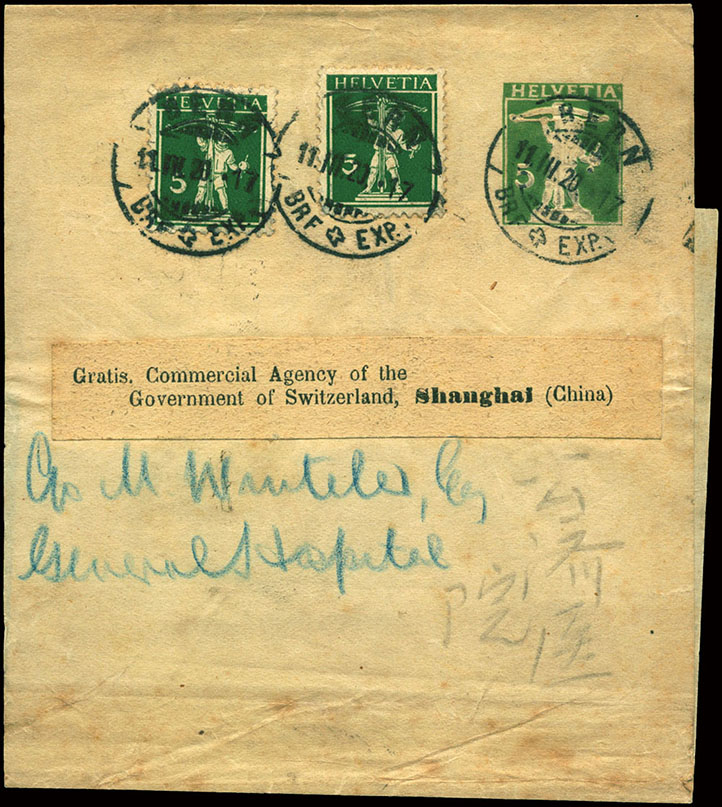 HELVETIA
5
HELVETIA
5
HELVETIA
5
BERN
11.III.20 17
BRF EXP.
11.III.20 17
BRF EXP.
11.III.20 17
BRF EXP.
Gratis. Commercial Agency of the
Government of Switzerland, Shanghai (China)
c/o M Winteler, Esq
General Hospital
公濟醫
院